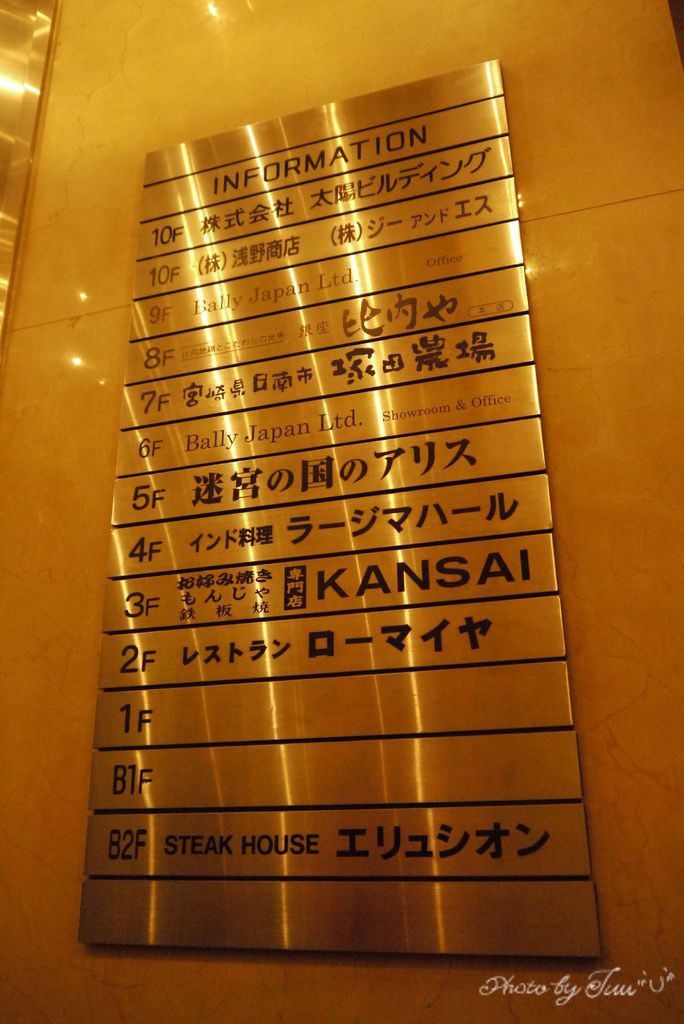 INFORMATION
10F 株式会社 太陽ビルディング
10F (株)浅野商店 (株)ジー アンド エス
9F Bally Japan Ltd. Office
8F 比内地鶏とこだわりの地酒 銀座 比内や 本店
7F 宮崎県日南市 塚田農場
6F Bally Japan Ltd. Showroom & Office
5F 迷宮の国のアリス
4F インド料理 ラージマハール
3F お好み焼き もんじゃ 鉄板焼 専門店 KANSAI
2F レストラン ローマイヤ
1F
B1F
B2F STEAK HOUSE エリュシオン
Photo by